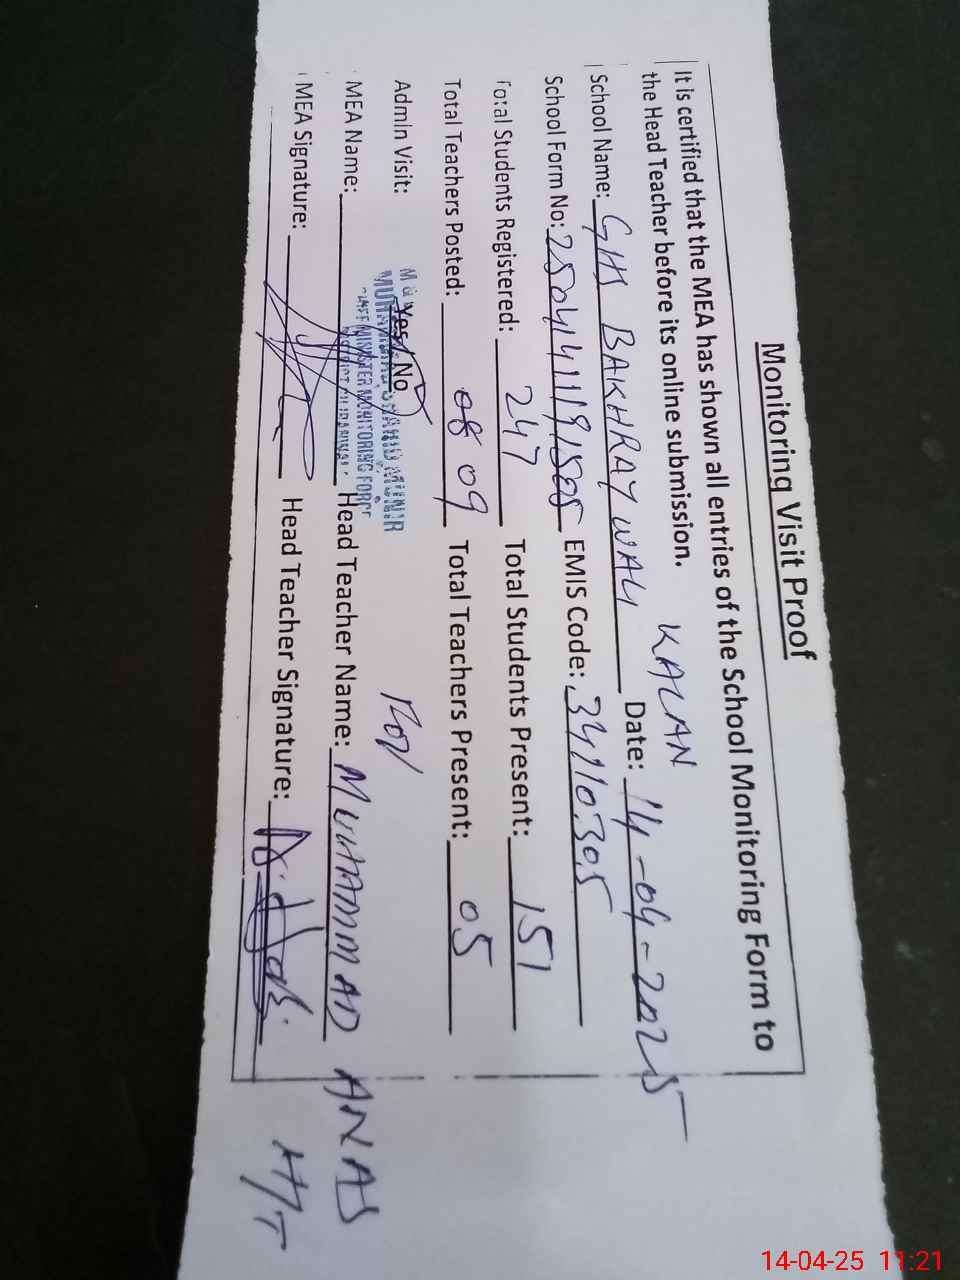 Monitoring Visit Proof
It is certified that the MEA has shown all entries of the School Monitoring Form to
the Head Teacher before its online submission.
KALAN
School Name: GHS BAKHRAY WALI Date: 14-04-2025
School Form No: EMIS Code: 34110305
Total Students Registered: 247 Total Students Present: 151
Total Teachers Posted: 08 09 Total Teachers Present: 05
Admin Visit: Yes / No
MUHAMMAD SHAHID MUNIR
CHIEF MINISTER MONITORING FORCE
MEA Name: Head Teacher Name: MUHAMMAD ANAS
MEA Signature: Head Teacher Signature: H/T
14-04-25 11:21